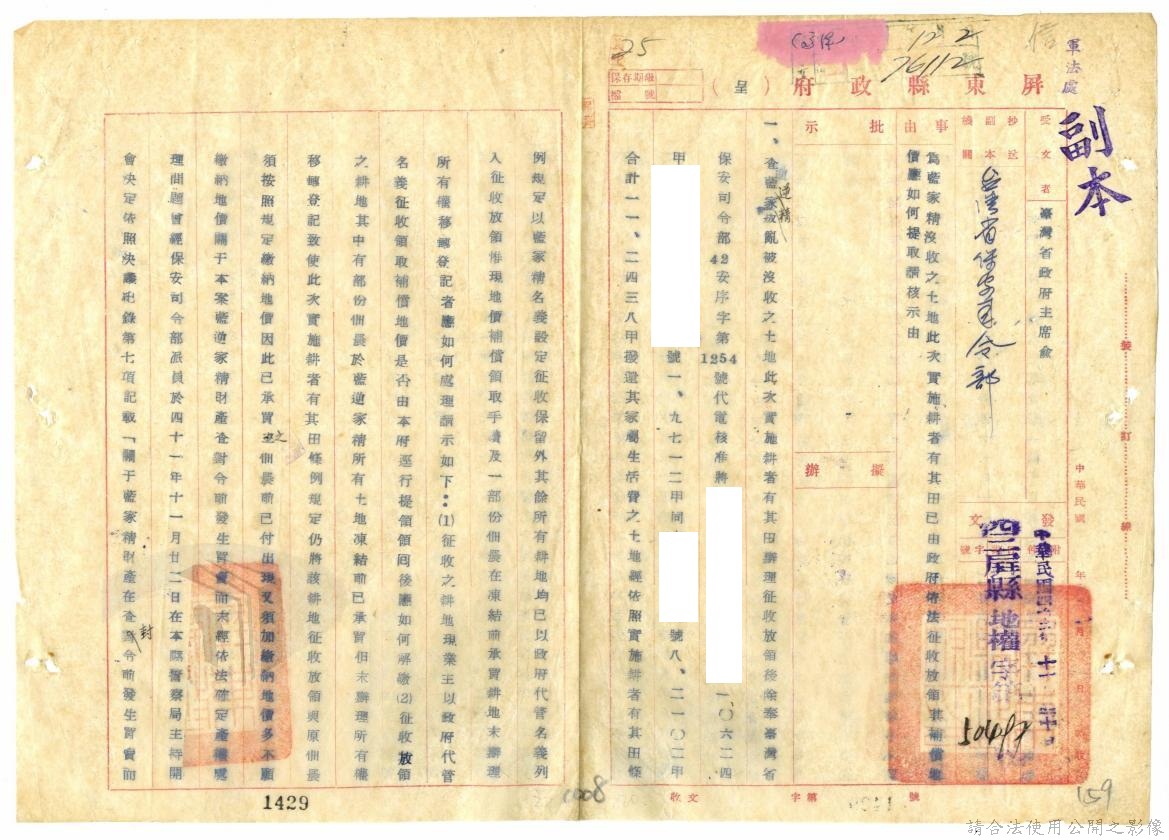 軍法處
副本
信
12 2
76112
25
保存期限
檔號
屏東縣政府（呈）
受文者
臺灣省政府主席俞
抄送副本機關
台灣省保安司令部
事由
為藍家精沒收之土地此次實施耕者有其田已由政府依法征收放領其補償地
價應如何提取請核示由
批示
擬辦
發文
字號
中華民國 年 月 日
中華民國四十二年十一月三十日
四二屏縣地權字第
50497
號
裝
訂
線
一、查藍家精叛亂被沒收之土地此次實施耕者有其田辦理征收放領後除奉臺灣省
逆精
保安司令部42安序字第1254號代電核准將
一〇六二四
甲
號一、九七一二甲同
號八、二一〇二甲
合計一一、二四三八甲發還其家屬生活費之土地經依照實施耕者有其田條
例規定以藍家精名義設定征收保留外其餘所有耕地均已以政府代管名義列
入征收放領惟現地價補償領取手續及一部份佃農在凍結前承買耕地未辦理
所有權移轉登記者應如何處理謹示如下：(1)征收之耕地現業主以政府代管
名義征收領取補償地價是否由本府逕行提領領回後應如何解繳(2)征收放領
之耕地其中有部份佃農於藍逆家精所有土地凍結前已承買但未辦理所有權
移轉登記致使此次實施耕者有其田條例規定仍將該耕地征收放領與原佃農
須按照規定繳納地價因此已承買之佃農前已付出現又須加繳納地價多不願
繳納地價關于本案藍逆家精財產查封令前發生買賣而未經依法確定產權處
理問題曾經保安司令部派員於四十一年十一月廿二日在本縣警察局主持開
會決定依照決議紀錄第七項記載「關于藍家精財產在查封令前發生買賣而
1429
1008
收文
字第
號
159
請合法使用公開之影像